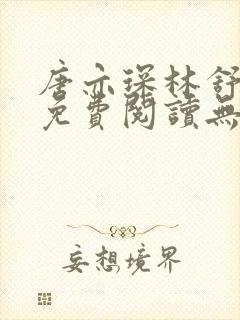 唐亦琛林舒
免費閱讀無
妄想境界